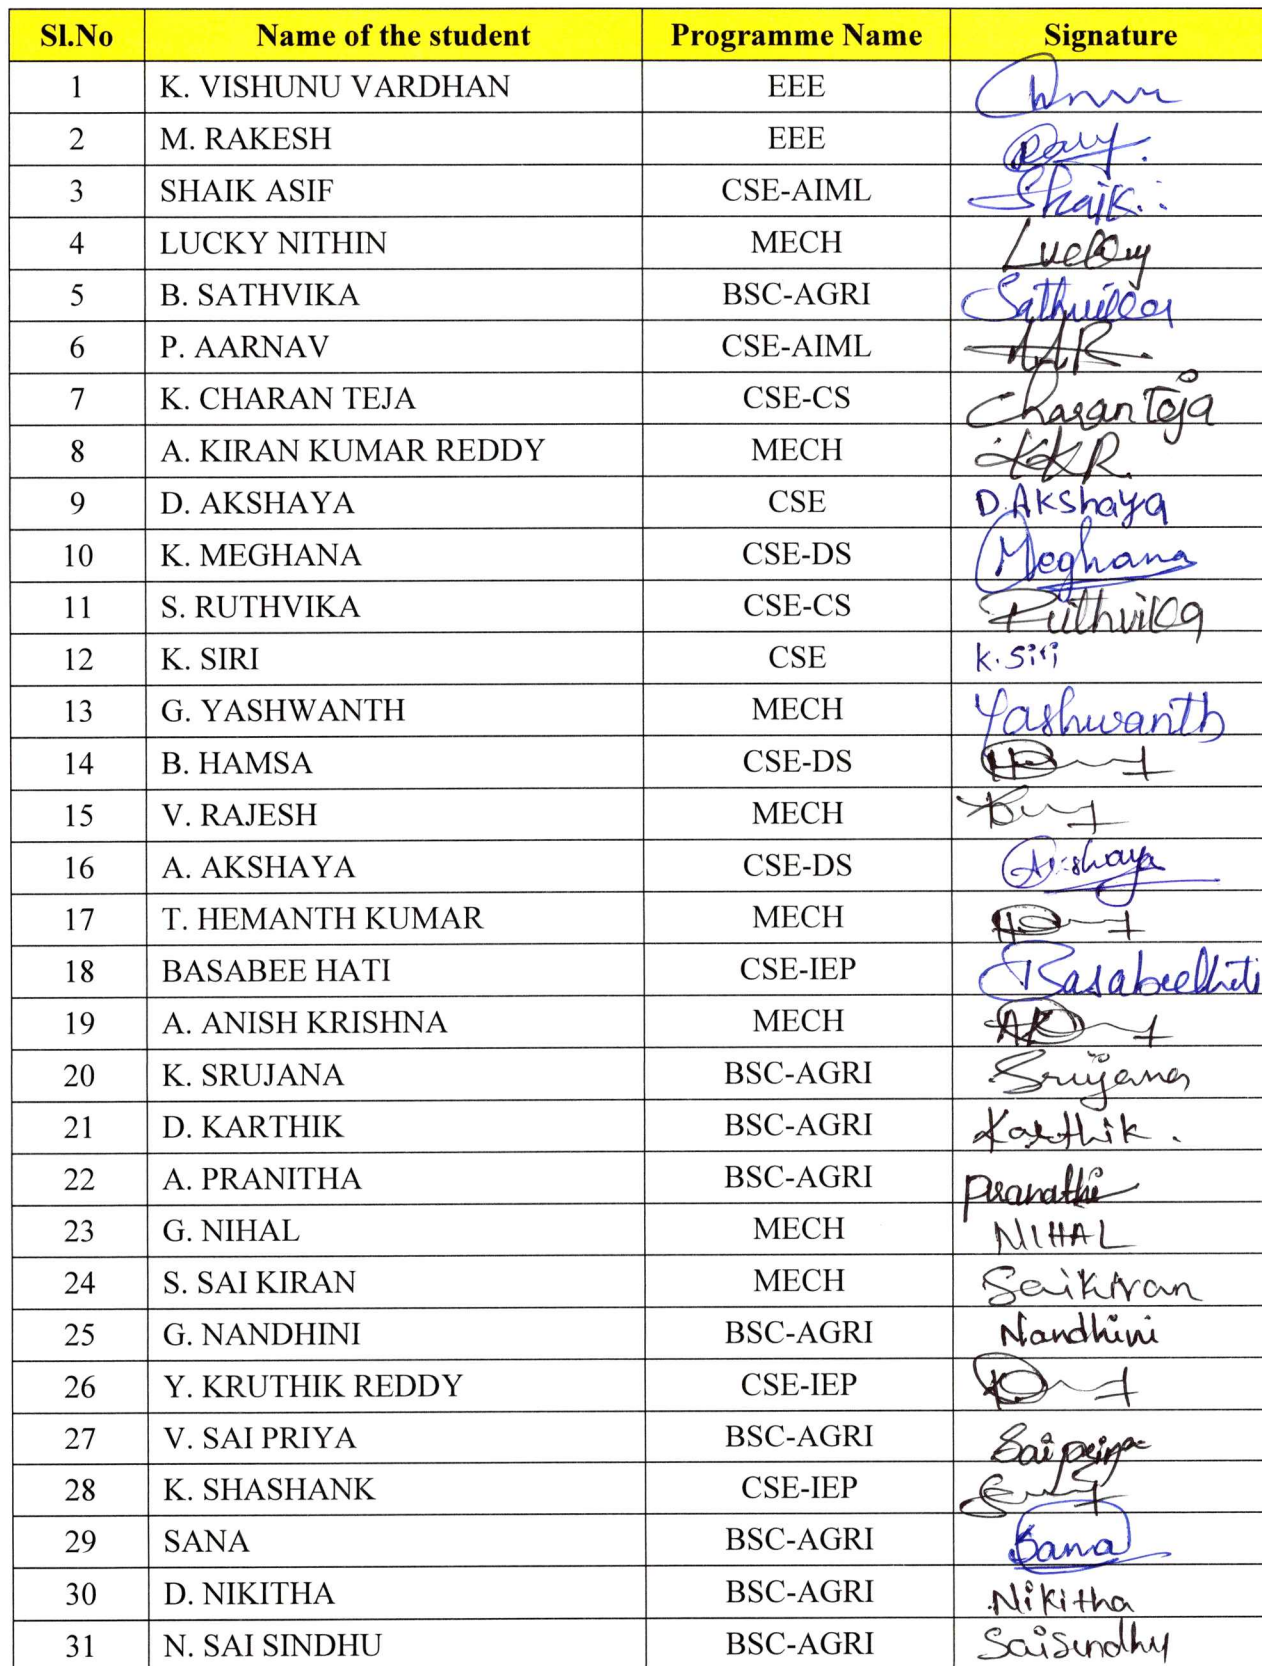 Sl.No Name of the student Programme Name Signature
1 K. VISHUNU VARDHAN EEE
2 M. RAKESH EEE
3 SHAIK ASIF CSE-AIML Shaik
4 LUCKY NITHIN MECH Lucky
5 B. SATHVIKA BSC-AGRI Sathvika
6 P. AARNAV CSE-AIML AAR.
7 K. CHARAN TEJA CSE-CS Charan Teja
8 A. KIRAN KUMAR REDDY MECH KKR.
9 D. AKSHAYA CSE D.Akshaya
10 K. MEGHANA CSE-DS Meghana
11 S. RUTHVIKA CSE-CS Ruthvika
12 K. SIRI CSE K. Siri
13 G. YASHWANTH MECH Yashwanth
14 B. HAMSA CSE-DS
15 V. RAJESH MECH
16 A. AKSHAYA CSE-DS Akshaya
17 T. HEMANTH KUMAR MECH
18 BASABEE HATI CSE-IEP Basabee Hati
19 A. ANISH KRISHNA MECH
20 K. SRUJANA BSC-AGRI Srujana
21 D. KARTHIK BSC-AGRI Karthik.
22 A. PRANITHA BSC-AGRI Pranathi
23 G. NIHAL MECH NIHAL
24 S. SAI KIRAN MECH Saikiran
25 G. NANDHINI BSC-AGRI Nandhini
26 Y. KRUTHIK REDDY CSE-IEP
27 V. SAI PRIYA BSC-AGRI Saipriya
28 K. SHASHANK CSE-IEP
29 SANA BSC-AGRI Sana
30 D. NIKITHA BSC-AGRI Nikitha
31 N. SAI SINDHU BSC-AGRI Saisindhu